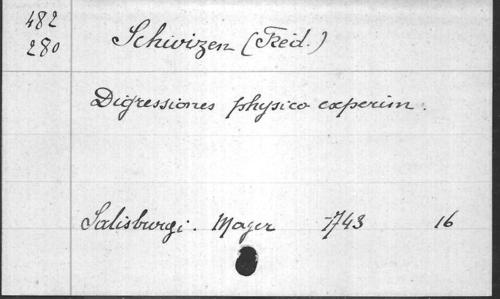 482
280
Schwizen (Fčid.)
Digressiones physico experim.
Salisburgi. Mayer 743 16